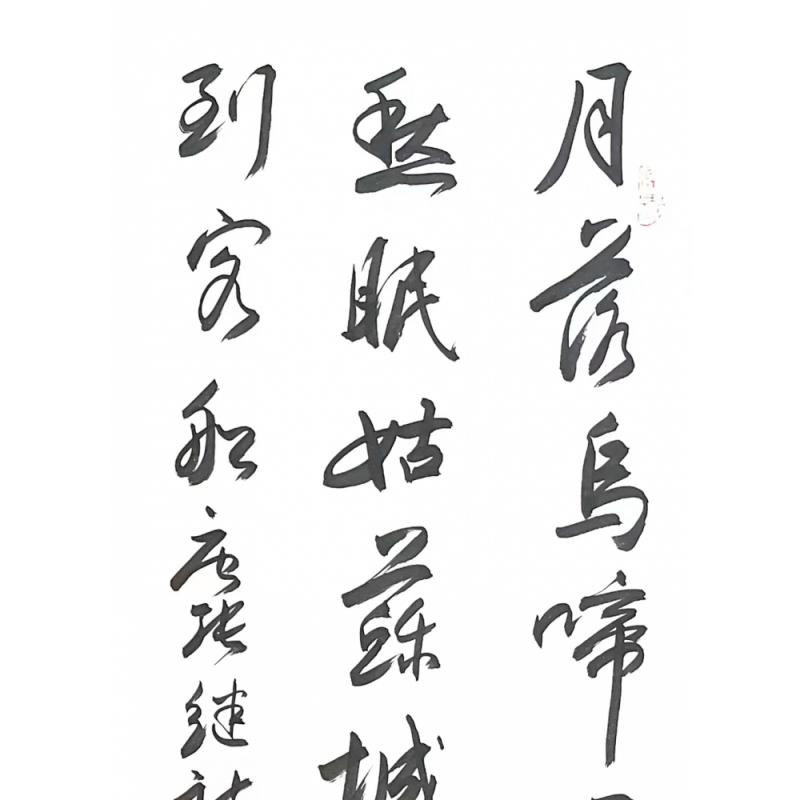 月落烏啼
愁眠姑蘇城
到客船唐張繼